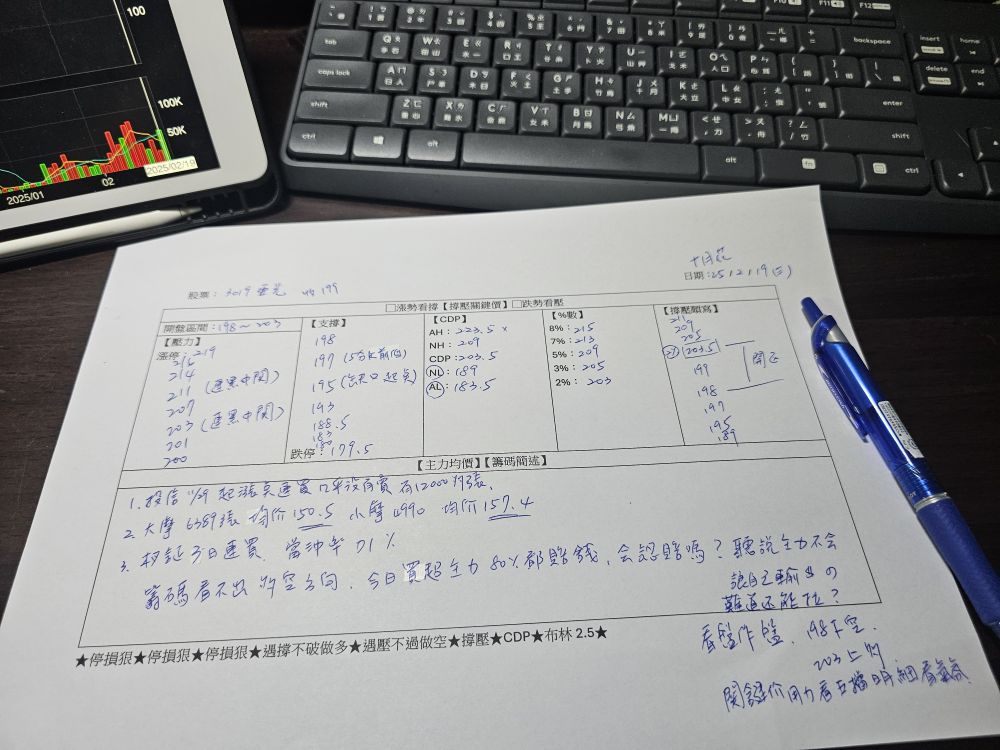 100
100K
50K
2025/01
02
2025/02/19
tab
caps lock
shift
ctrl
alt
backspace
enter
shift
alt
fn
ctrl
insert
home
delete
end
F10
F11
F12
日期:25/2/19(三)
股票: 3019 亞光 收199
□漲勢看撐【撐壓關鍵價】□跌勢看壓
開盤區間:198~203
【壓力】
漲停:219
216
214
211 (連黑中關)
207
203 (連黑中關)
201
200
【支撐】
198
197
195
193
188.5
183
180
跌停:179.5
【CDP】
AH: 223.5 x
NH: 209
CDP:203.5
NL: 189
AL: 183.5
【%數】
8%: 215
7%: 213
5%: 209
3%: 205
2%: 203
【撐壓順寫】
211
209
205
203.5
199
198
197
195
189
開正
【主力均價】【籌碼簡述】
1. 投信 11/29 起漲點連買 幾乎沒有賣 有12000張.
2. 大摩 6389張 均价 150.5 小摩 4990 均价 157.4
3. 3日連買. 當沖率 71%
籌碼看不出多空方向. 今日買超主力 80%都賠錢, 会認賠嗎? 聽說主力不会
讓自己輸的
難道還能拉?
看盤作盤. 198下空.
203上多
関鍵价用力看五檔明細看氣氛
★停損狠★停損狠★停損狠★遇撐不破做多★遇壓不過做空★撐壓★CDP★布林 2.5★